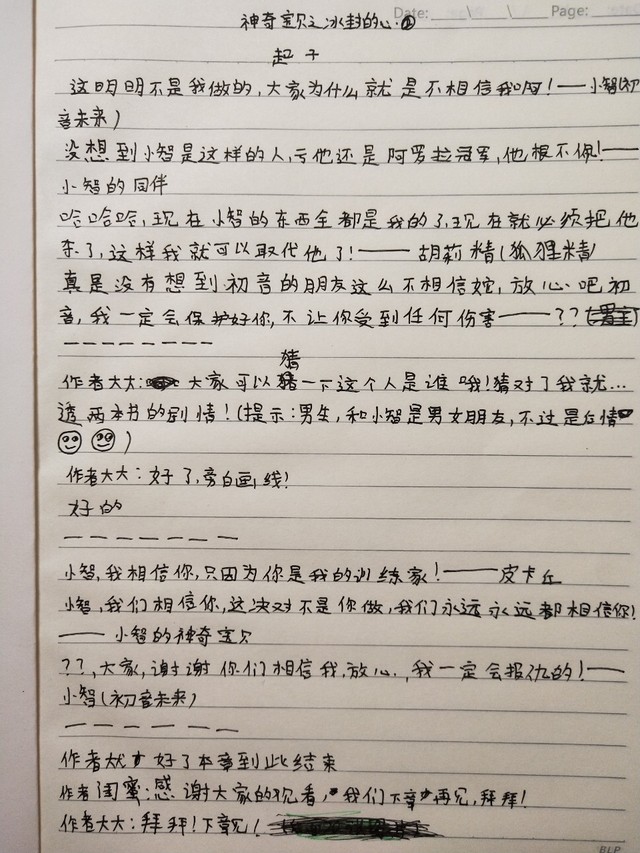 Date: / / Page:
神奇宝贝之冰封的心.①
起子
这明明不是我做的,大家为什么就是不相信我啊!——小智(初
音未来)
没想到小智是这样的人,亏他还是阿罗拉冠军,他根不佩!——
小智的同伴
哈哈哈,现在小智的东西全都是我的了,现在就必须把他
杀了,这样我就可以取代他了!——胡莉精(狐狸精)
真是没有想到初音的朋友这么不相信她,放心吧初
音,我一定会保护好你,不让你受到任何伤害——??
————————
猜
作者大大:大家可以一下这个人是谁哦!猜对了我就...
透两本书的剧情!(提示:男生,和小智是男女朋友,不过是后情
)
作者大大:好了,旁白画线!
好的
———————
小智,我相信你,只因为你是我的训练家!——皮卡丘
小智,我们相信你,这决对不是你做,我们永远永远都相信你!
——小智的神奇宝贝
??,大家,谢谢你们相信我,放心,我一定会报仇的!——
小智(初音未来)
———————
作者大大好了本章到此结束
作者闺蜜:感谢大家的观看,我们下章再见,拜拜!
作者大大:拜拜!下章见!
BLP